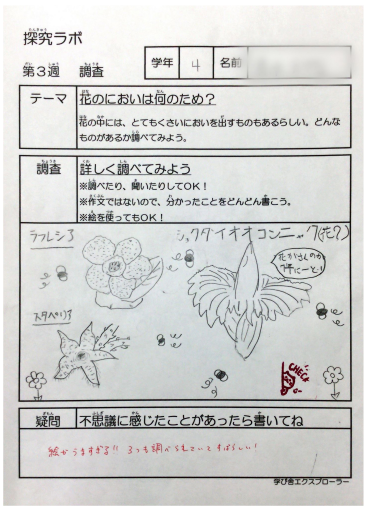 探究ラボ
第3週 調査
学年 4 名前
テーマ
花のにおいは何のため?
花の中には、とてもくさいにおいを出すものもあるらしい。どんな
ものがあるか調べてみよう。
調査
詳しく調べてみよう
※調べたり、聞いたりしてOK!
※作文ではないので、分かったことをどんどん書こう。
※絵を使ってもOK!
ラフレシア
ショクダイオオコンニャク(花?)
スタペリア
CHECK
疑問
不思議に感じたことがあったら書いてね
絵がうますぎる!! 3つも調べられていてすばらしい!
学び舎エクスプローラー